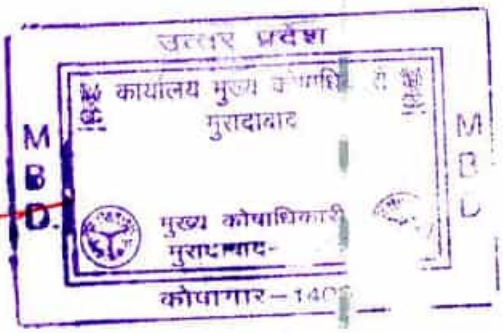 उत्तर प्रदेश
कार्यालय मुख्य
मुरादाबाद
M
B
D.
M
B
D
मुख्य कोषाधिकारी
मुरादाबाद-
कोषागार-140